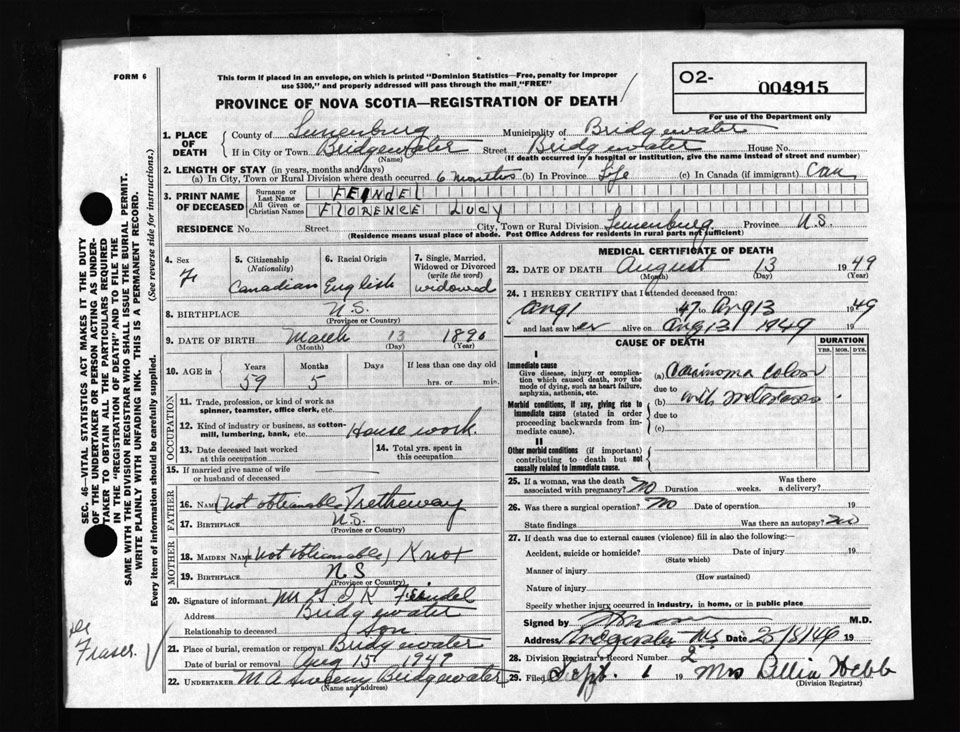 FORM 6
This form if placed in an envelope, on which is printed "Dominion Statistics—Free, penalty for improper
use $300," and properly addressed will pass through the mail, "FREE"
PROVINCE OF NOVA SCOTIA—REGISTRATION OF DEATH
O2- 004915
For use of the Department only
1. PLACE OF DEATH County of Lunenburg Municipality of Bridgewater
If in City or Town Bridgewater (Name) Street Bridgewater House No.
(If death occurred in a hospital or institution, give the name instead of street and number)
2. LENGTH OF STAY (in years, months and days)
(a) In City, Town or Rural Division where death occurred 6 months (b) In Province Life (c) In Canada (if immigrant) Can
3. PRINT NAME OF DECEASED Surname or Last Name FEINDEL
All Given or Christian Names FLORENCE LUCY
RESIDENCE No. Street City, Town or Rural Division Lunenburg Province N.S.
(Residence means usual place of abode. Post Office Address for residents in rural parts not sufficient)
4. Sex F
5. Citizenship (Nationality) Canadian
6. Racial Origin English
7. Single, Married, Widowed or Divorced (write the word) widowed
8. BIRTHPLACE N.S.
(Province or Country)
9. DATE OF BIRTH March 13 1890
(Month) (Day) (Year)
10. AGE in Years 59 Months 5 Days If less than one day old hrs. or min.
OCCUPATION
11. Trade, profession, or kind of work as spinner, teamster, office clerk, etc.
12. Kind of industry or business, as cotton-mill, lumbering, bank, etc. House work.
13. Date deceased last worked at this occupation
14. Total yrs. spent in this occupation
15. If married give name of wife or husband of deceased
FATHER
16. Name (not obtainable) Tretheway
17. BIRTHPLACE N.S.
(Province or Country)
MOTHER
18. MAIDEN NAME (not obtainable) Knox
19. BIRTHPLACE N S
(Province or Country)
20. Signature of informant Mr Feindel
Address Bridgewater
Relationship to deceased Son
21. Place of burial, cremation or removal Bridgewater
Date of burial or removal Aug 15 1949
22. UNDERTAKER M A Sweeny Bridgewater
(Name and address)
MEDICAL CERTIFICATE OF DEATH
23. DATE OF DEATH August 13 1949
(Month) (Day) (Year)
24. I HEREBY CERTIFY that I attended deceased from:
Aug 1 47 to Aug 13 1949
and last saw her alive on Aug 13 1949 19
CAUSE OF DEATH
DURATION
YRS. MOS. DYS.
I
Immediate cause
Give disease, injury or complication which caused death, not the mode of dying, such as heart failure, asphyxia, asthenia, etc.
(a) Carcinoma Colon
due to
Morbid conditions, if any, giving rise to immediate cause (stated in order proceeding backwards from immediate cause).
(b) with metastases
due to
(c)
II
Other morbid conditions (if important) contributing to death but not causally related to immediate cause.
25. If a woman, was the death associated with pregnancy? No Duration weeks. Was there a delivery?
26. Was there a surgical operation? No Date of operation 19
State findings Was there an autopsy? No
27. If death was due to external causes (violence) fill in also the following:—
Accident, suicide or homicide? Date of injury 19
(State which)
Manner of injury
(How sustained)
Nature of injury
Specify whether injury occurred in industry, in home, or in public place
Signed by M.D.
Address Bridgewater NS Date 19
28. Division Registrar's Record Number 2
29. Filed Sept. 1 19 Mrs Lillia Webb
(Division Registrar)
SEC. 46—VITAL STATISTICS ACT MAKES IT THE DUTY
OF THE UNDERTAKER OR PERSON ACTING AS UNDER-
TAKER TO OBTAIN ALL THE PARTICULARS REQUIRED
IN THE "REGISTRATION OF DEATH" AND TO FILE THE
SAME WITH THE DIVISION REGISTRAR WHO SHALL ISSUE THE BURIAL PERMIT.
WRITE PLAINLY WITH UNFADING INK. THIS IS A PERMANENT RECORD.
Every item of information should be carefully supplied. (See reverse side for instructions.)
Dr
Fraser.